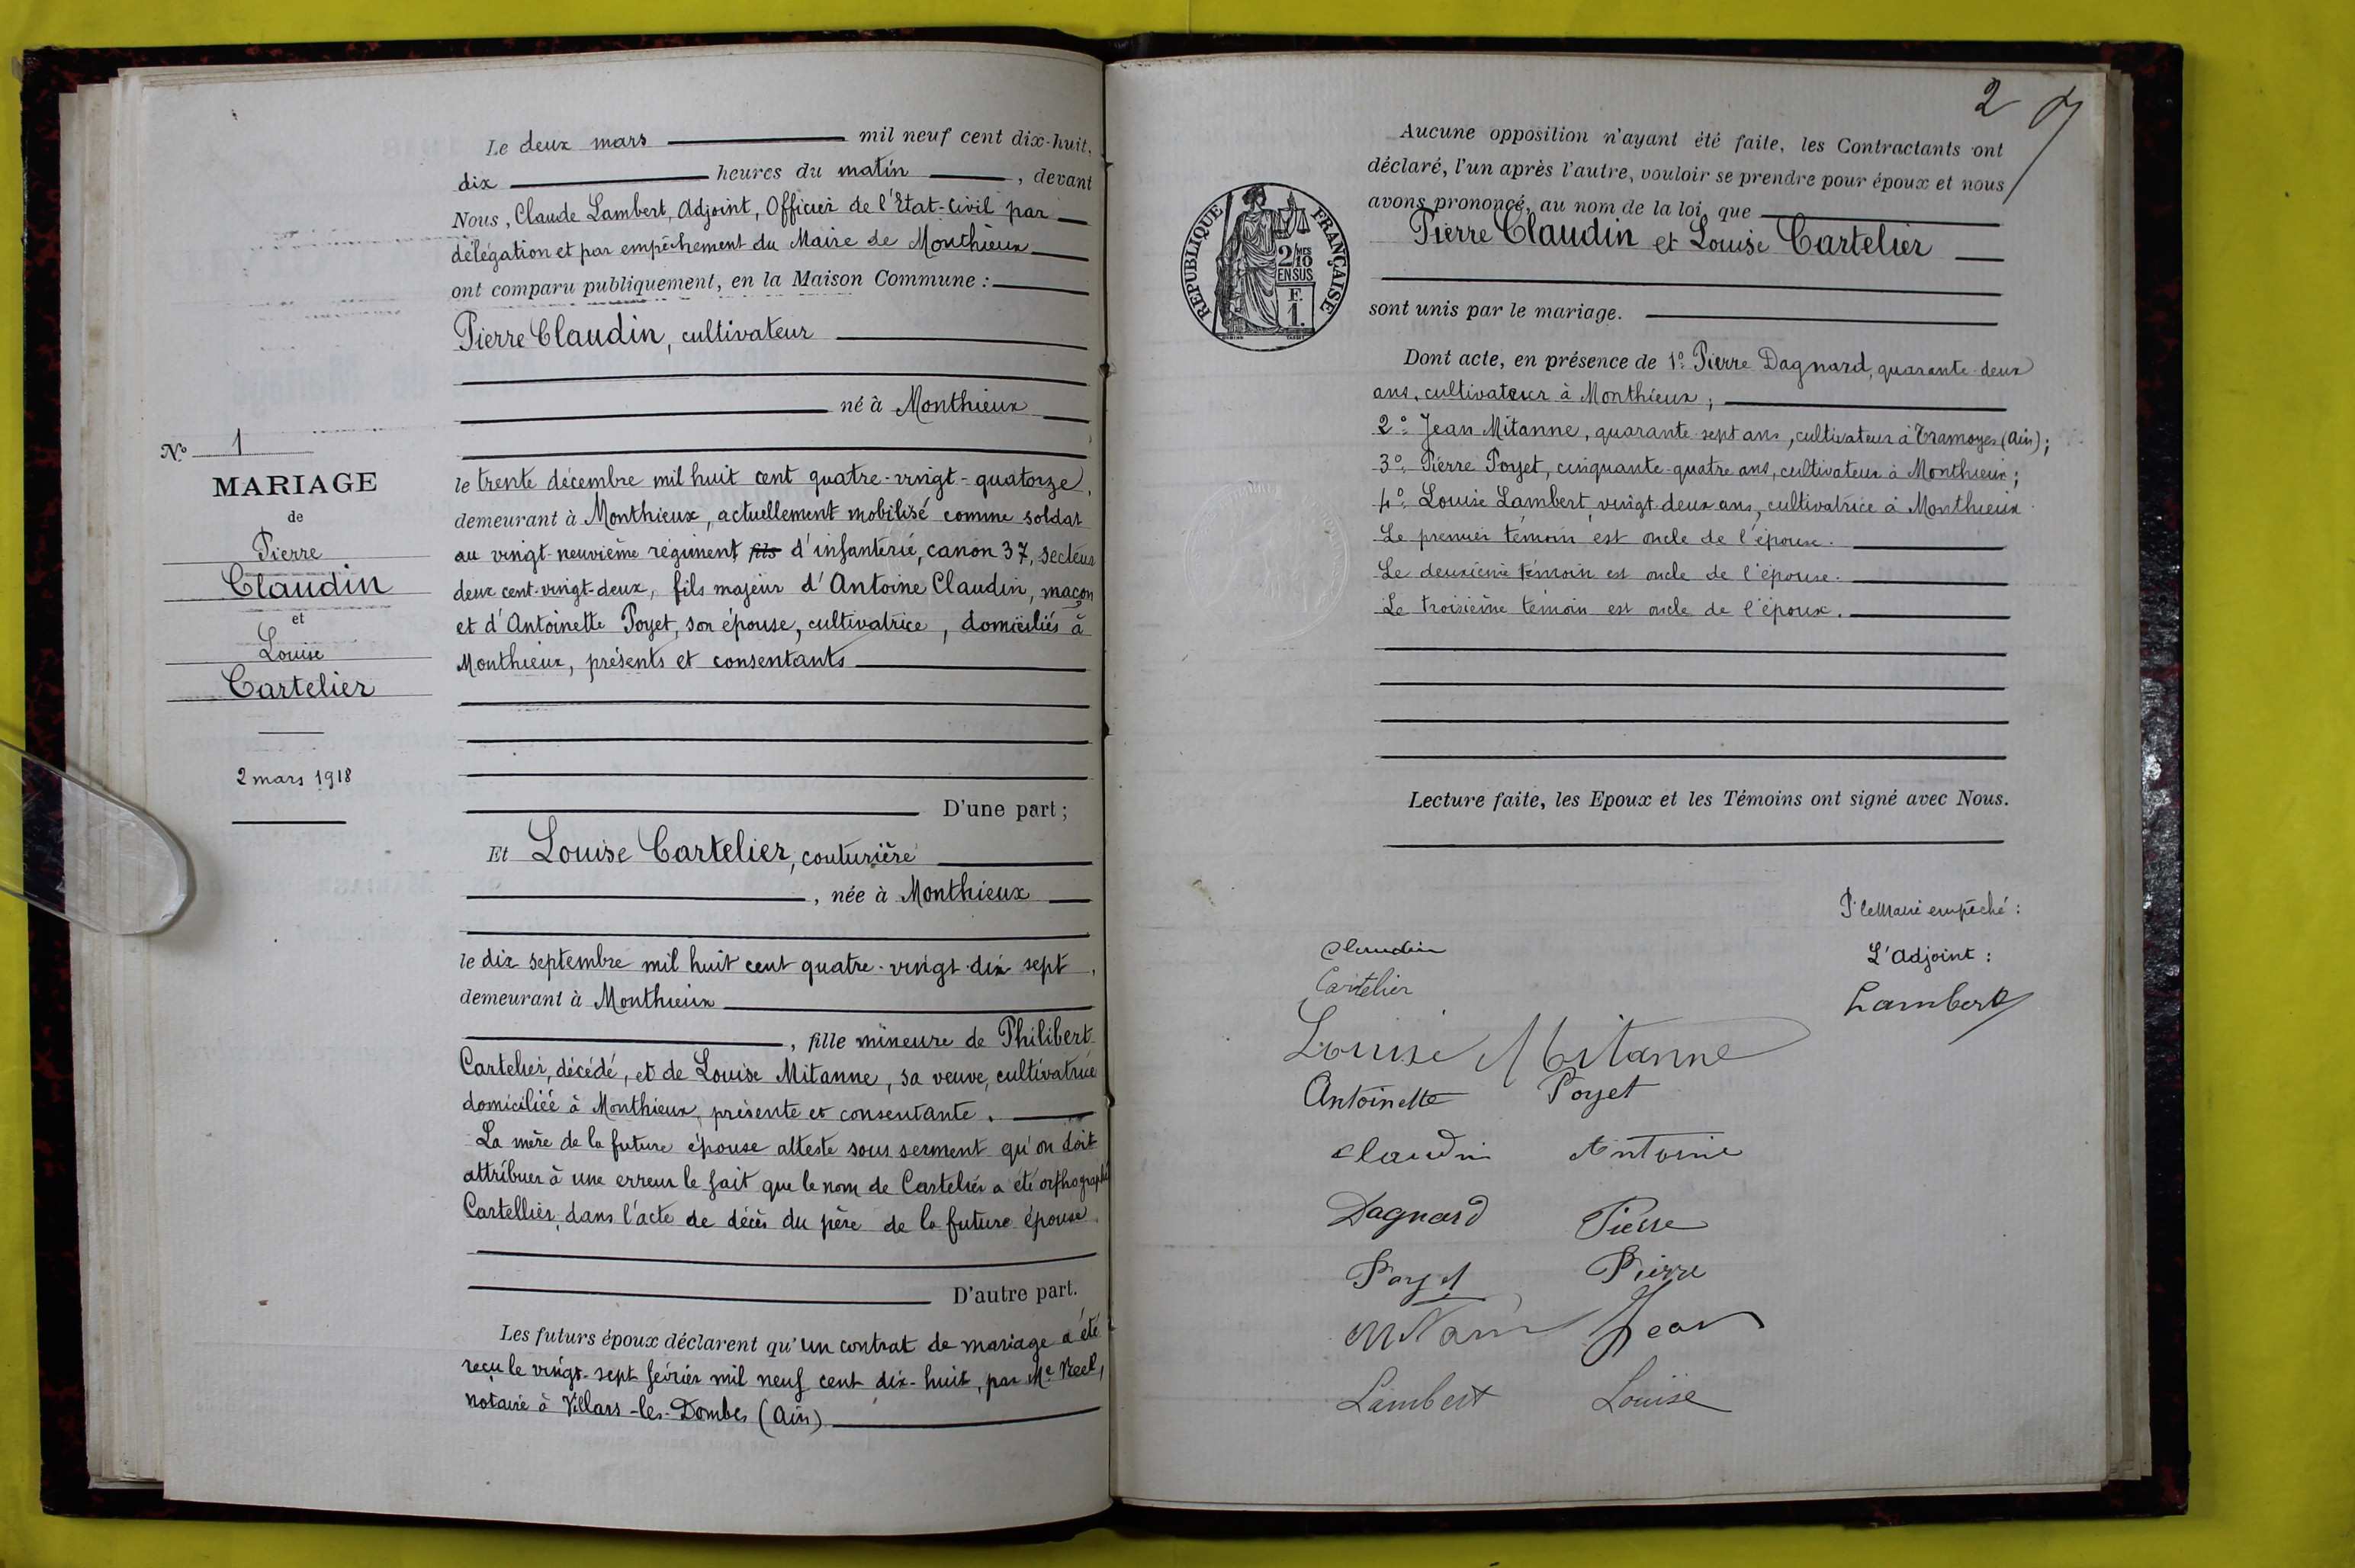 Le deux mars mil neuf cent dix-huit,
dix heures du matin, devant
Nous, Claude Lambert, Adjoint, Officier de l'Etat-Civil par
délégation et par empêchement du Maire de Monthieux
ont comparu publiquement, en la Maison Commune :
Pierre Claudin, cultivateur
né à Monthieux
le trente décembre mil huit cent quatre-vingt-quatorze,
demeurant à Monthieux, actuellement mobilisé comme soldat
au vingt-neuvième régiment fils d'infanterie, canon 37, secteur
deux cent-vingt-deux, fils majeur d'Antoine Claudin, maçon
et d'Antoinette Poyet, son épouse, cultivatrice, domiciliés à
Monthieux, présents et consentants
D'une part ;
Et Louise Cartelier, couturière
, née à Monthieux
le dix septembre mil huit cent quatre-vingt-dix sept,
demeurant à Monthieux
, fille mineure de Philibert
Cartelier, décédé, et de Louise Mitanne, sa veuve, cultivatrice
domiciliée à Monthieux, présente et consentante.
La mère de la future épouse atteste sous serment qu'on doit
attribuer à une erreur le fait que le nom de Cartelier a été orthographié
Cartellier, dans l'acte de décès du père de la future épouse.
D'autre part.
Les futurs époux déclarent qu'un contrat de mariage a été
reçu le vingt-sept février mil neuf cent dix-huit, par Me
notaire à Villars-les-Dombes (Ain)
No 1
MARIAGE
de
Pierre
Claudin
et
Louise
Cartelier
2 mars 1918
2
Aucune opposition n'ayant été faite, les Contractants ont
déclaré, l'un après l'autre, vouloir se prendre pour époux et nous
avons prononcé, au nom de la loi, que
Pierre Claudin et Louise Cartelier
sont unis par le mariage.
RÉPUBLIQUE FRANÇAISE
2/10
MES
EN SUS
F.
1.
Dont acte, en présence de 1o Pierre Dagnard, quarante-deux
ans, cultivateur à Monthieux ;
2o Jean Mitanne, quarante-sept ans, cultivateur à Tramoyes (Ain) ;
3o Pierre Poyet, cinquante-quatre ans, cultivateur à Monthieux ;
4o Louise Lambert, vingt-deux ans, cultivatrice à Monthieux.
Le premier témoin est oncle de l'épouse.
Le deuxième témoin est oncle de l'épouse.
Le troisième témoin est oncle de l'époux.
Lecture faite, les Epoux et les Témoins ont signé avec Nous.
P. le Maire empêché :
L'Adjoint :
Lambert
Claudin
Cartelier
Louise Mitanne
Antoinette Poyet
Claudin Antoine
Dagnard Pierre
Poyet Pierre
Jean
Lambert Louise